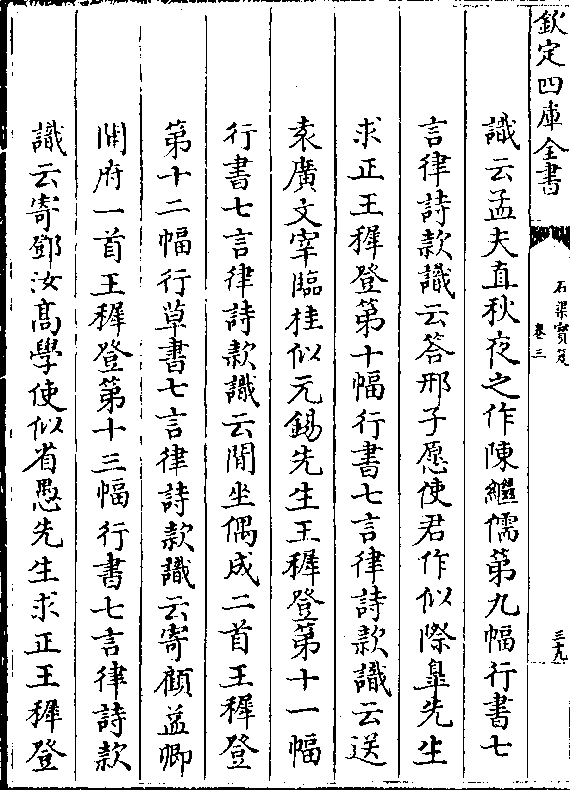 欽定四庫全書
石渠寳笈
卷三
三十九
識云孟夫直秋夜之作陳繼儒第九幅行書七
言律詩款識云答邢子愿使君作似際臯先生
求正王穉登第十幅行書七言律詩款識云送
袁廣文宰臨桂似元錫先生王穉登第十一幅
行書七言律詩款識云閒坐偶成二首王穉登
第十二幅行草書七言律詩款識云寄顧益卿
開府一首王穉登第十三幅行書七言律詩款
識云寄鄧汝髙學使似省愚先生求正王穉登